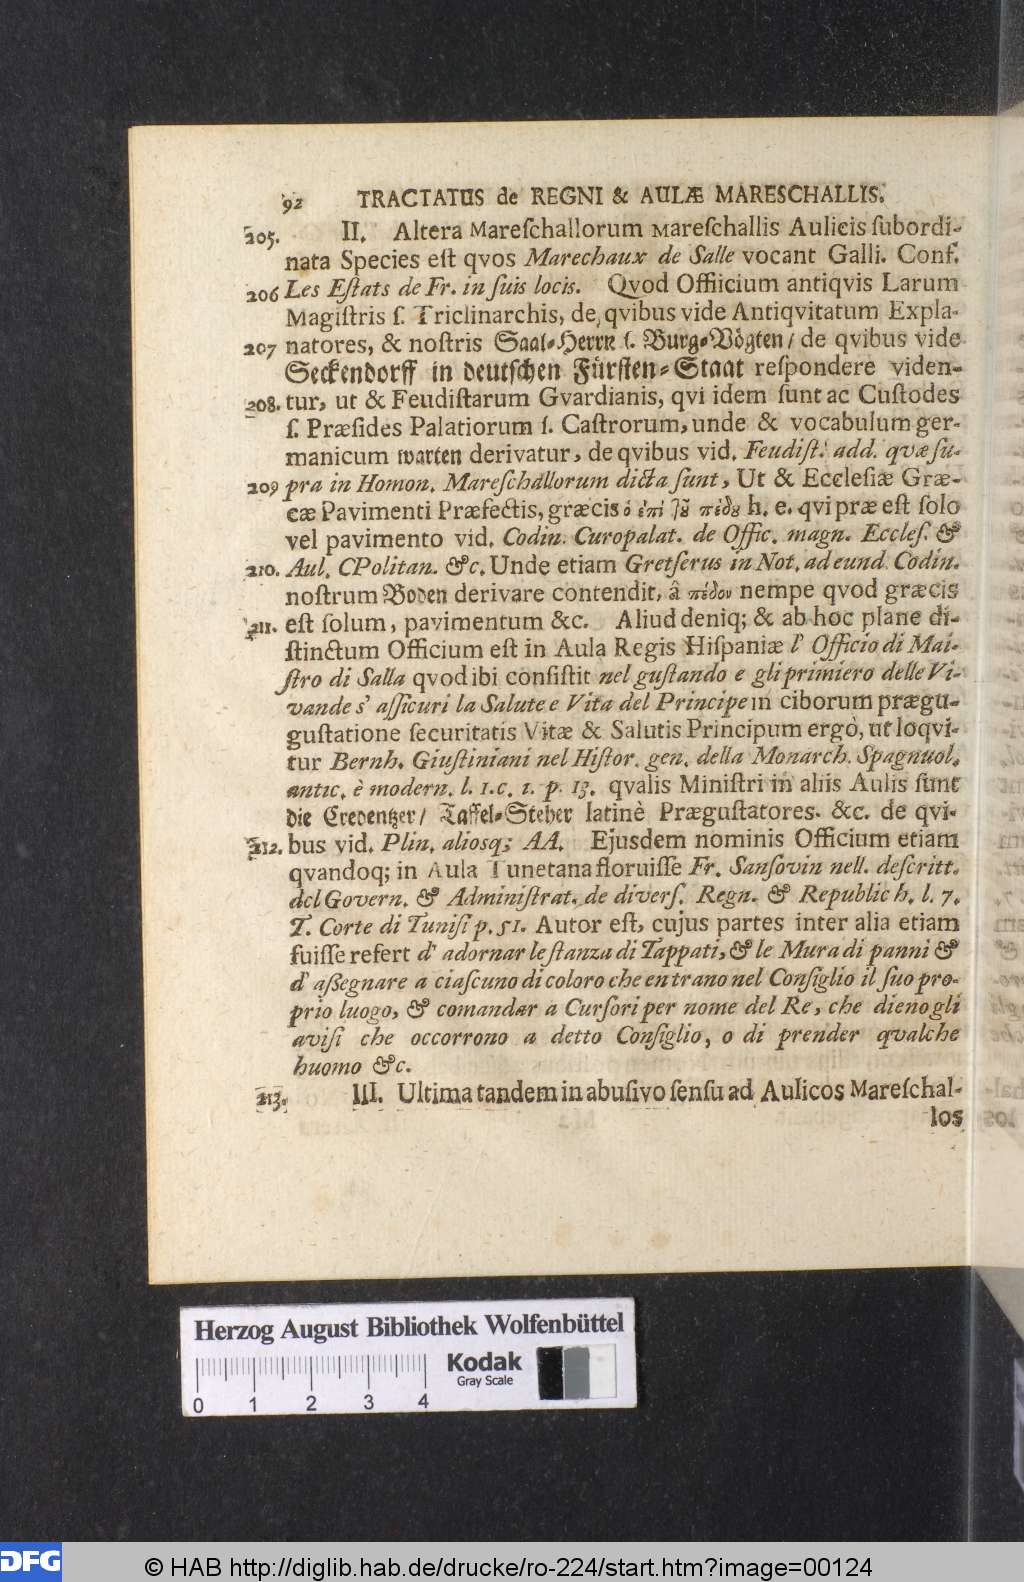 92 TRACTATUS de REGNI & AULÆ MARESCHALLIS.
205. II. Altera Mareſchallorum Mareſchallis Aulicis ſubordi-
nata Species eſt qvos Marechaux de Salle vocant Galli. Conf.
206 Les Eſtats de Fr. in ſuis locis. Qvod Offiicium antiqvis Larum
Magiſtris ſ. Triclinarchis, de qvibus vide Antiqvitatum Expla-
207 natores, & noſtris Saal-Herrn ſ. Burg-Vögten/ de qvibus vide
Seckendorff in deutſchen Fürſten-Staat reſpondere viden-
208. tur, ut & Feudiſtarum Gvardianis, qvi idem ſunt ac Cuſtodes
ſ. Præſides Palatiorum ſ. Caſtrorum, unde & vocabulum ger-
manicum warten derivatur, de qvibus vid. Feudiſt. add. qvæ ſu-
209 pra in Homon. Mareſchallorum dicta ſunt, Ut & Eccleſiæ Græ-
cæ Pavimenti Præfectis, græcis ὁ ἐπὶ τοῦ πέδου h. e. qvi præ eſt ſolo
vel pavimento vid. Codin. Curopalat. de Offic. magn. Eccleſ. &
210. Aul. CPolitan. &c. Unde etiam Gretſerus in Not. ad eund. Codin.
noſtrum Boden derivare contendit, â πέδον nempe qvod græcis
211. eſt ſolum, pavimentum &c. Aliud deniq; & ab hoc plane di-
ſtinctum Officium eſt in Aula Regis Hiſpaniæ l' Officio di Mai-
ſtro di Salla qvod ibi conſiſtit nel guſtando e gli primiero delle Vi-
vande s' aſſicuri la Salute e Vita del Principe in ciborum prægu-
guſtatione ſecuritatis Vitæ & Salutis Principum ergò, ut loqvi-
tur Bernh. Giuſtiniani nel Hiſtor. gen. della Monarch. Spagnuol.
antic. è modern. l. 1. c. 1. p. 13. qvalis Miniſtri in aliis Aulis ſunt
die Credentzer/ Taffel-Steher latinè Præguſtatores. &c. de qvi-
212. bus vid. Plin. aliosq; AA. Ejusdem nominis Officium etiam
qvandoq; in Aula Tunetana floruiſſe Fr. Sanſovin nell. deſcritt.
del Govern. & Adminiſtrat. de diverſ. Regn. & Republich. l. 7.
T. Corte di Tuniſi p. 51. Autor eſt, cujus partes inter alia etiam
fuiſſe refert d' adornar le ſtanza di Tappati, & le Mura di panni &
d' aßegnare a ciaſcuno di coloro che entrano nel Conſiglio il ſuo pro-
prio luogo, & comandar a Curſori per nome del Re, che dieno gli
aviſi che occorrono a detto Conſiglio, o di prender qvalche
huomo &c.
213. III. Ultima tandem in abuſivo ſenſu ad Aulicos Mareſchal-
los
Herzog August Bibliothek Wolfenbüttel
Kodak
Gray Scale
0 1 2 3 4
DFG © HAB http://diglib.hab.de/drucke/ro-224/start.htm?image=00124